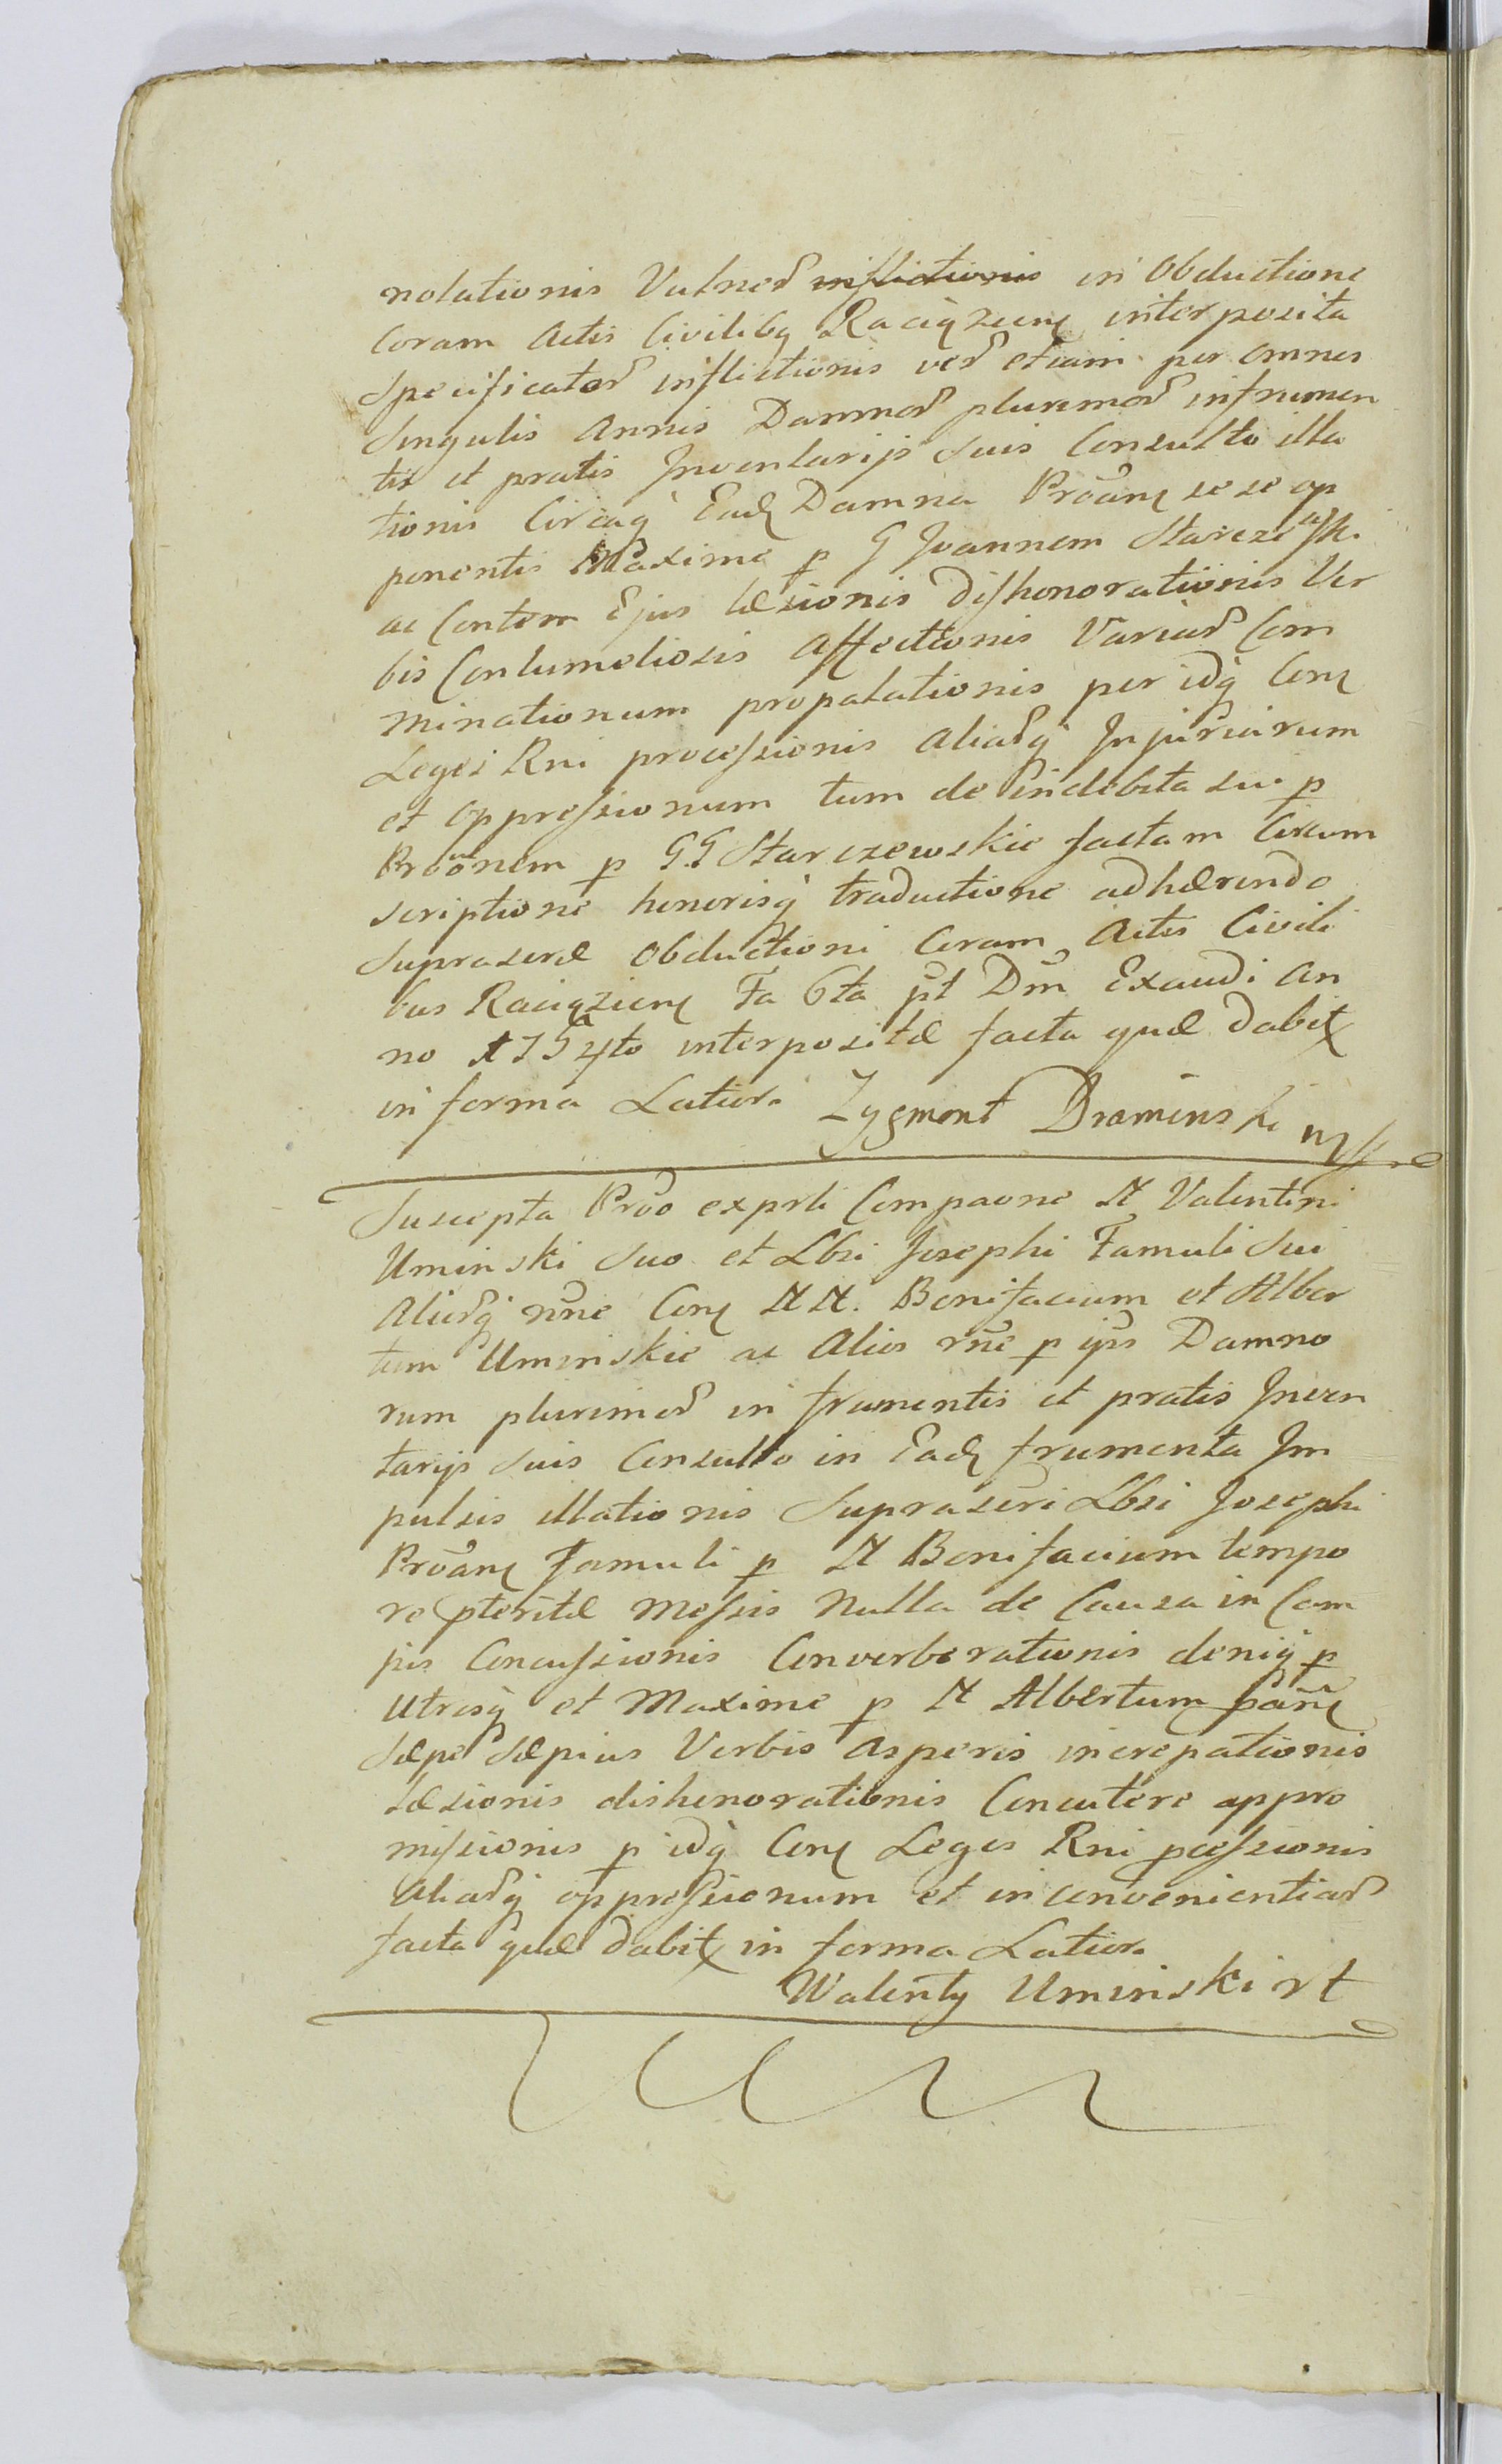 notationis Vulner ~~inflictionis~~ in Obductione
Coram Actis Civilibq Raciązien interposita
Specificator inflictionis ver etiam per omnes
Singulis Annis Damnor plurimor in frumen
tis et pratis Inventarijs suis Consulto illa
tionis Circaq Ead Damna Proan sese op
ponentis Maxime p G Joannem Starczewski
ac Contem Ejus læsionis dishonorationis Ver
bis Contumeliosis Affectionis Variar Com
minationum propalationis per idq Con
Leges Rni processionis Aliarq Injuriarum
et oppressionum tum de indebita sui p
Proonem p G.G Starczewskie factam Circum
scriptione honorisq traductione adhærendo
Suprascræ Obductioni Coram Actis Civili
bus Raciązien Fa 6ta pt Dm Exaudi An
no 1754to interpositæ facta quæ dabit
in forma Latiori Zygmont Draminski mp
Suscepta Proo exprli Compaone M Valentini
Uminski suo et Lbri Josephi Famuli Sui
Aliorq nne Con M M. Bonifacium et Alber
tum Uminskie ac Alios rne p ips Damno
rum plurimor in frumentis et pratis Inven
tarijs suis Consulto in Ead frumenta Im
pulsis illationis Suprascri Lbri Josephi
Proan Famuli p M Bonifacium tempo
re pteritæ Messis Nulla de Causa in Cam
pis Concussionis Converberationis deniq p
Utrosq et Maxime p M Albertum pan
sæpe sæpius Verbis Asperis increpationis
læsionis dishonorationis Concutere appro
missionis p idq Con Leges Rni pcessionis
Aliarq oppressionum et inconvenientiar
facta quæ dabit in forma Latiori
Walenty Uminski